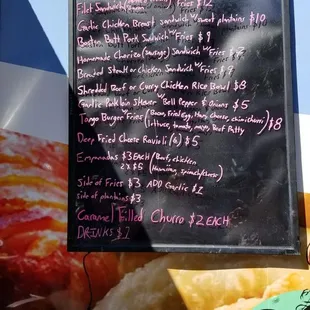 Filet Sandwich Fries $12
Garlic Chicken Breast Sandwich w/ sweet plantains $10
Boston Butt Pork Sandwich w/ Fries $9
Homemade Chorizo (Sausage) Sandwich w/ Fries $
Breaded Steak or Chicken Sandwich w/ Fries $
Shredded Beef or Curry Chicken Rice Bowl $8
Garlic Skewer w/ Bell Pepper & Onions $5
Tango Burger w/ Fries (Bacon, Fried Egg, Ham, Cheese, chimichurri) $8
(lettuce, tomato, mayo, Beef Patty
Deep Fried Cheese Ravioli (6) $5
Empanadas $3 EACH / Beef, chicken
2 x $5 (Hawaiian, spinach/cheese)
Side of Fries $3 ADD Garlic $1
Side of plantains $3
Caramel Filled Churro $2 EACH
DRINKS $1